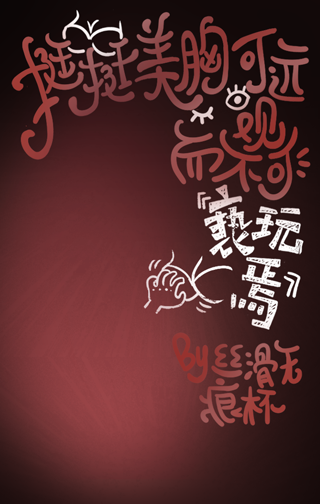 挺挺美胸可远
观
而不可
『亵玩
焉』
By丝滑无
痕杯